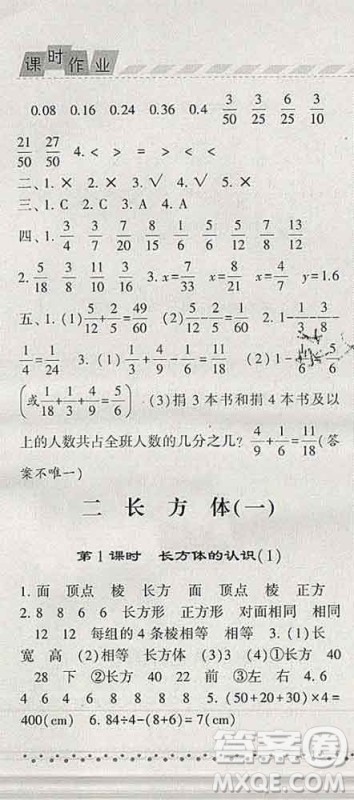 课时作业
0.08 0.16 0.24 0.36 0.4 3/50 3/25 6/25 9/50
21/50 27/50 4.< > = > < <
二、1.× 2.× 3.√ 4.√ 5.×
三、1.C 2.C 3.A 4.A
四、1. 3/4 3/7 17/20 7/8 5/6 5/12 8/13 7/12
2. 5/18 3/8 3.x=7/30 x=8/9 y=1.6
五、1.(1)5/12+2/5=49/60 (2)5/12 2.1-1/3-3/8
1/4=1/24 3.(1)1/3+4/9-1/6=11/18 (2)1-1/6=5/6
(或1/18+1/3+4/9=5/6) (3)捐3本书和捐4本书及以
上的人数共占全班人数的几分之几? 4/9+1/6=11/18(答
案不唯一)
二 长方体(一)
第1课时 长方体的认识(1)
1.面 顶点 棱 长方 面 顶点 棱 正方
2.8 8 6 6 长方形 正方形 对面相同 相同
12 12 每组的4条棱相等 相等 3.(1)长
宽 高 (2)相等 长方体 (3)3 (4)①长方 40
28 下 ②长方 40 20 前 ③左 右 4.
6 4 6 4 8 8 8 8 5.(50+30+20)×4=
400(cm) 6.84÷4-(8+6)=7(cm)
答案圈
MXQE.COM